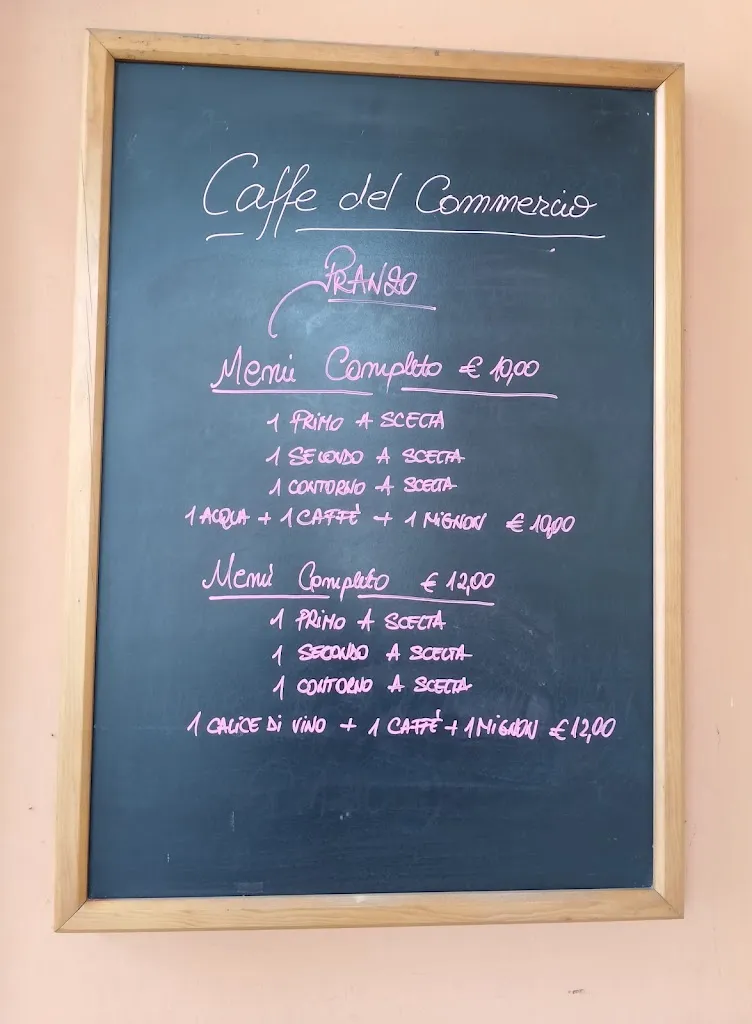 Caffe del Commercio
PRANZO
Menù Completo € 10,00
1 PRIMO A SCELTA
1 SECONDO A SCELTA
1 CONTORNO A SCELTA
1 ACQUA + 1 CAFFÈ + 1 MIGNON € 10,00
Menù Completo € 12,00
1 PRIMO A SCELTA
1 SECONDO A SCELTA
1 CONTORNO A SCELTA
1 CALICE DI VINO + 1 CAFFÈ + 1 MIGNON € 12,00